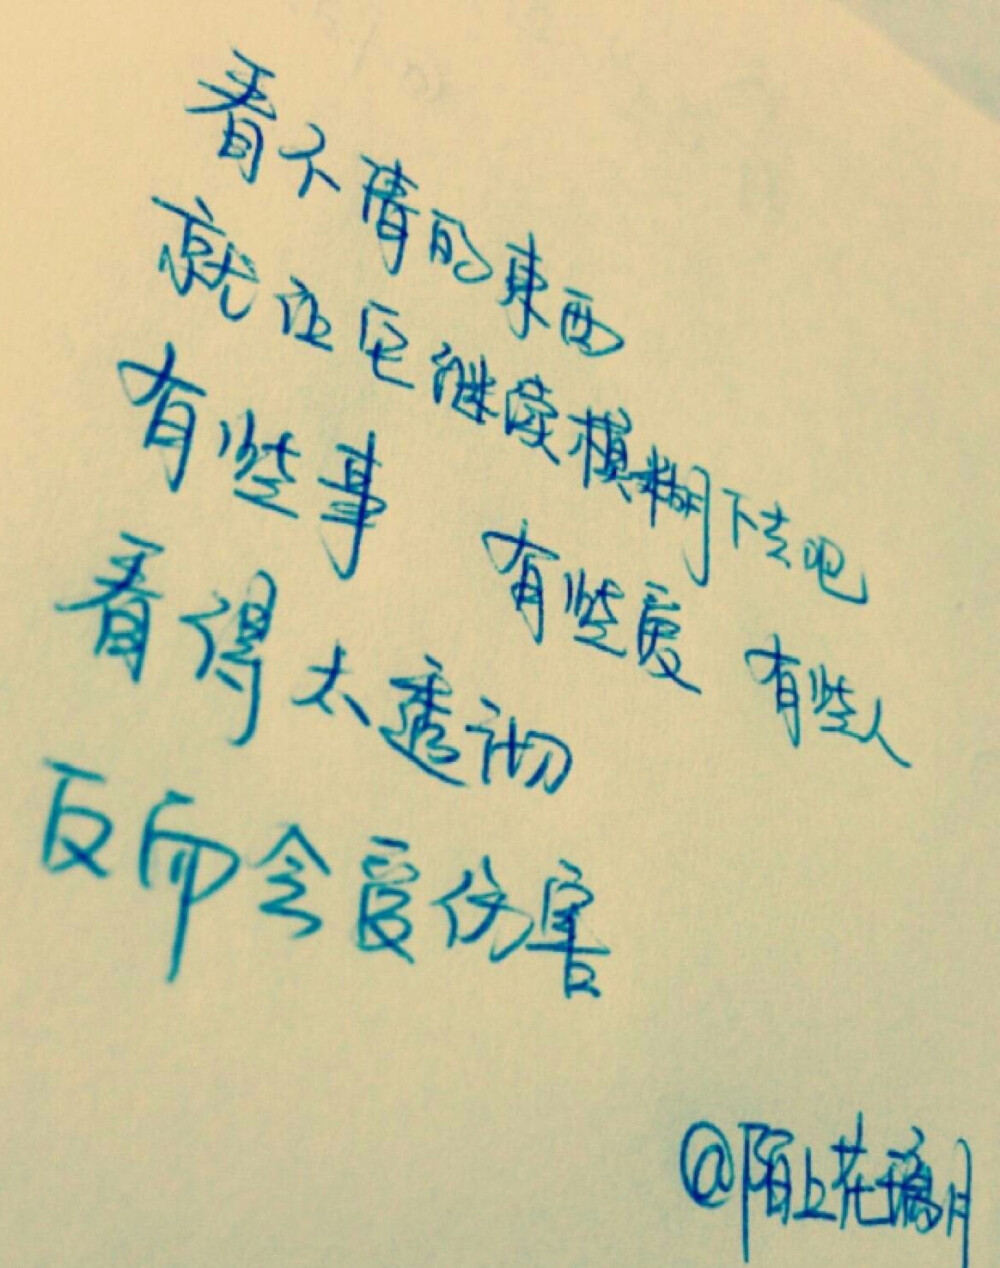 看不清的東西
就让它继续模糊下去吧
有些事 有些爱 有些人
看得太透彻
反而会受伤害
@陌上花璃月